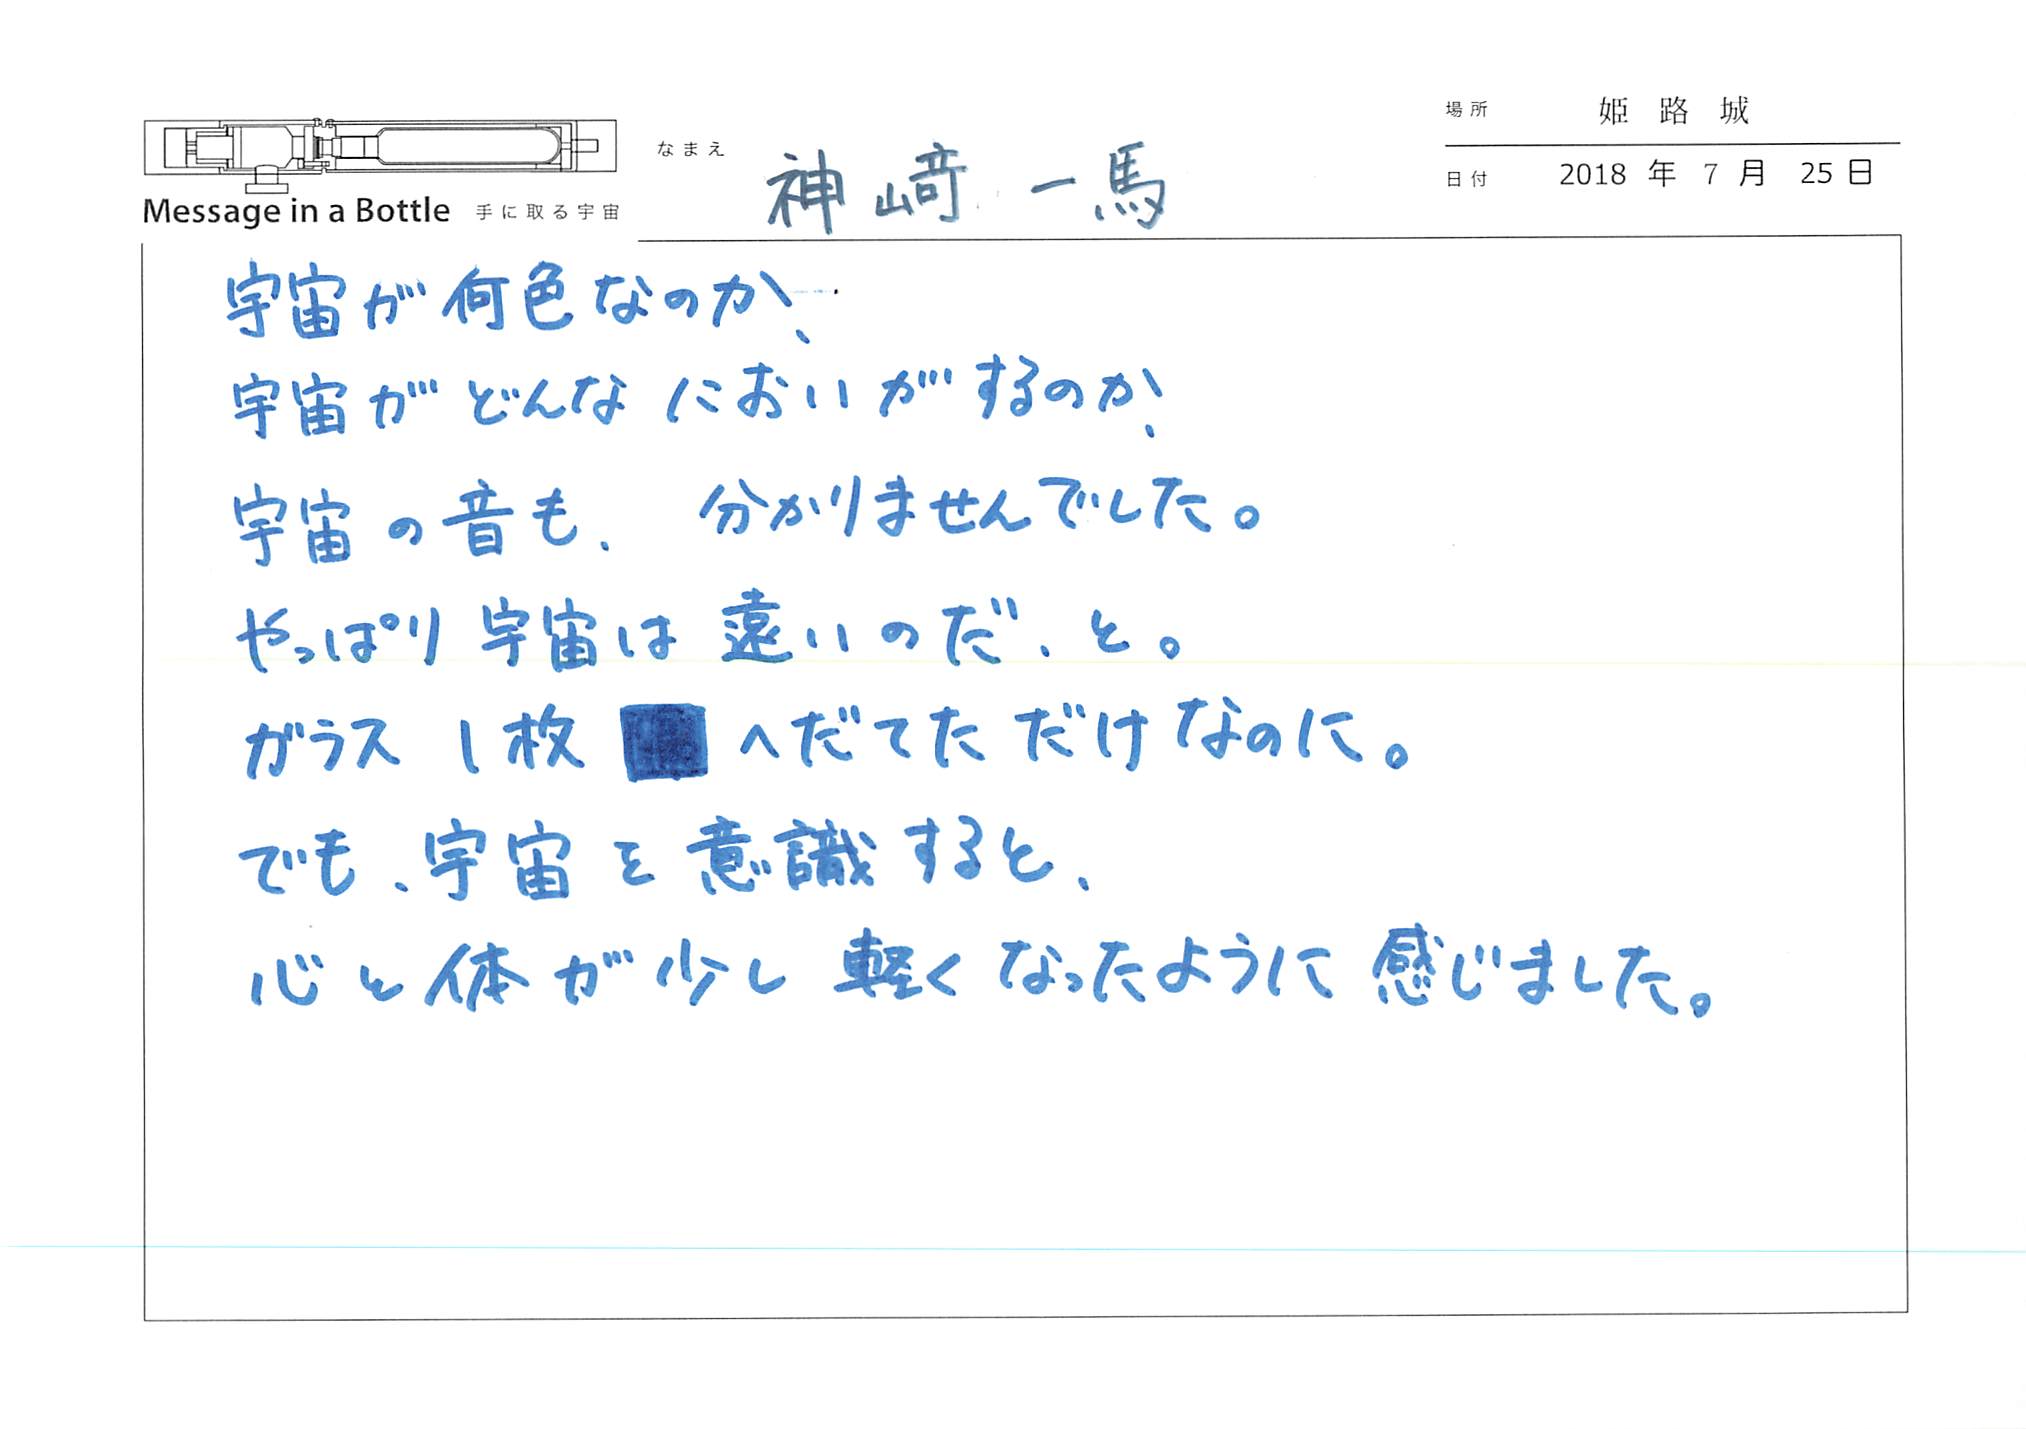 場所 姫路城
なまえ 神﨑 一馬
日付 2018 年 7 月 25 日
Message in a Bottle 手に取る宇宙
宇宙が何色なのか、
宇宙がどんなにおいがするのか、
宇宙の音も、分かりませんでした。
やっぱり宇宙は遠いのだ、と。
ガラス1枚 へだてただけなのに。
でも、宇宙を意識すると、
心と体が少し軽くなったように感じました。